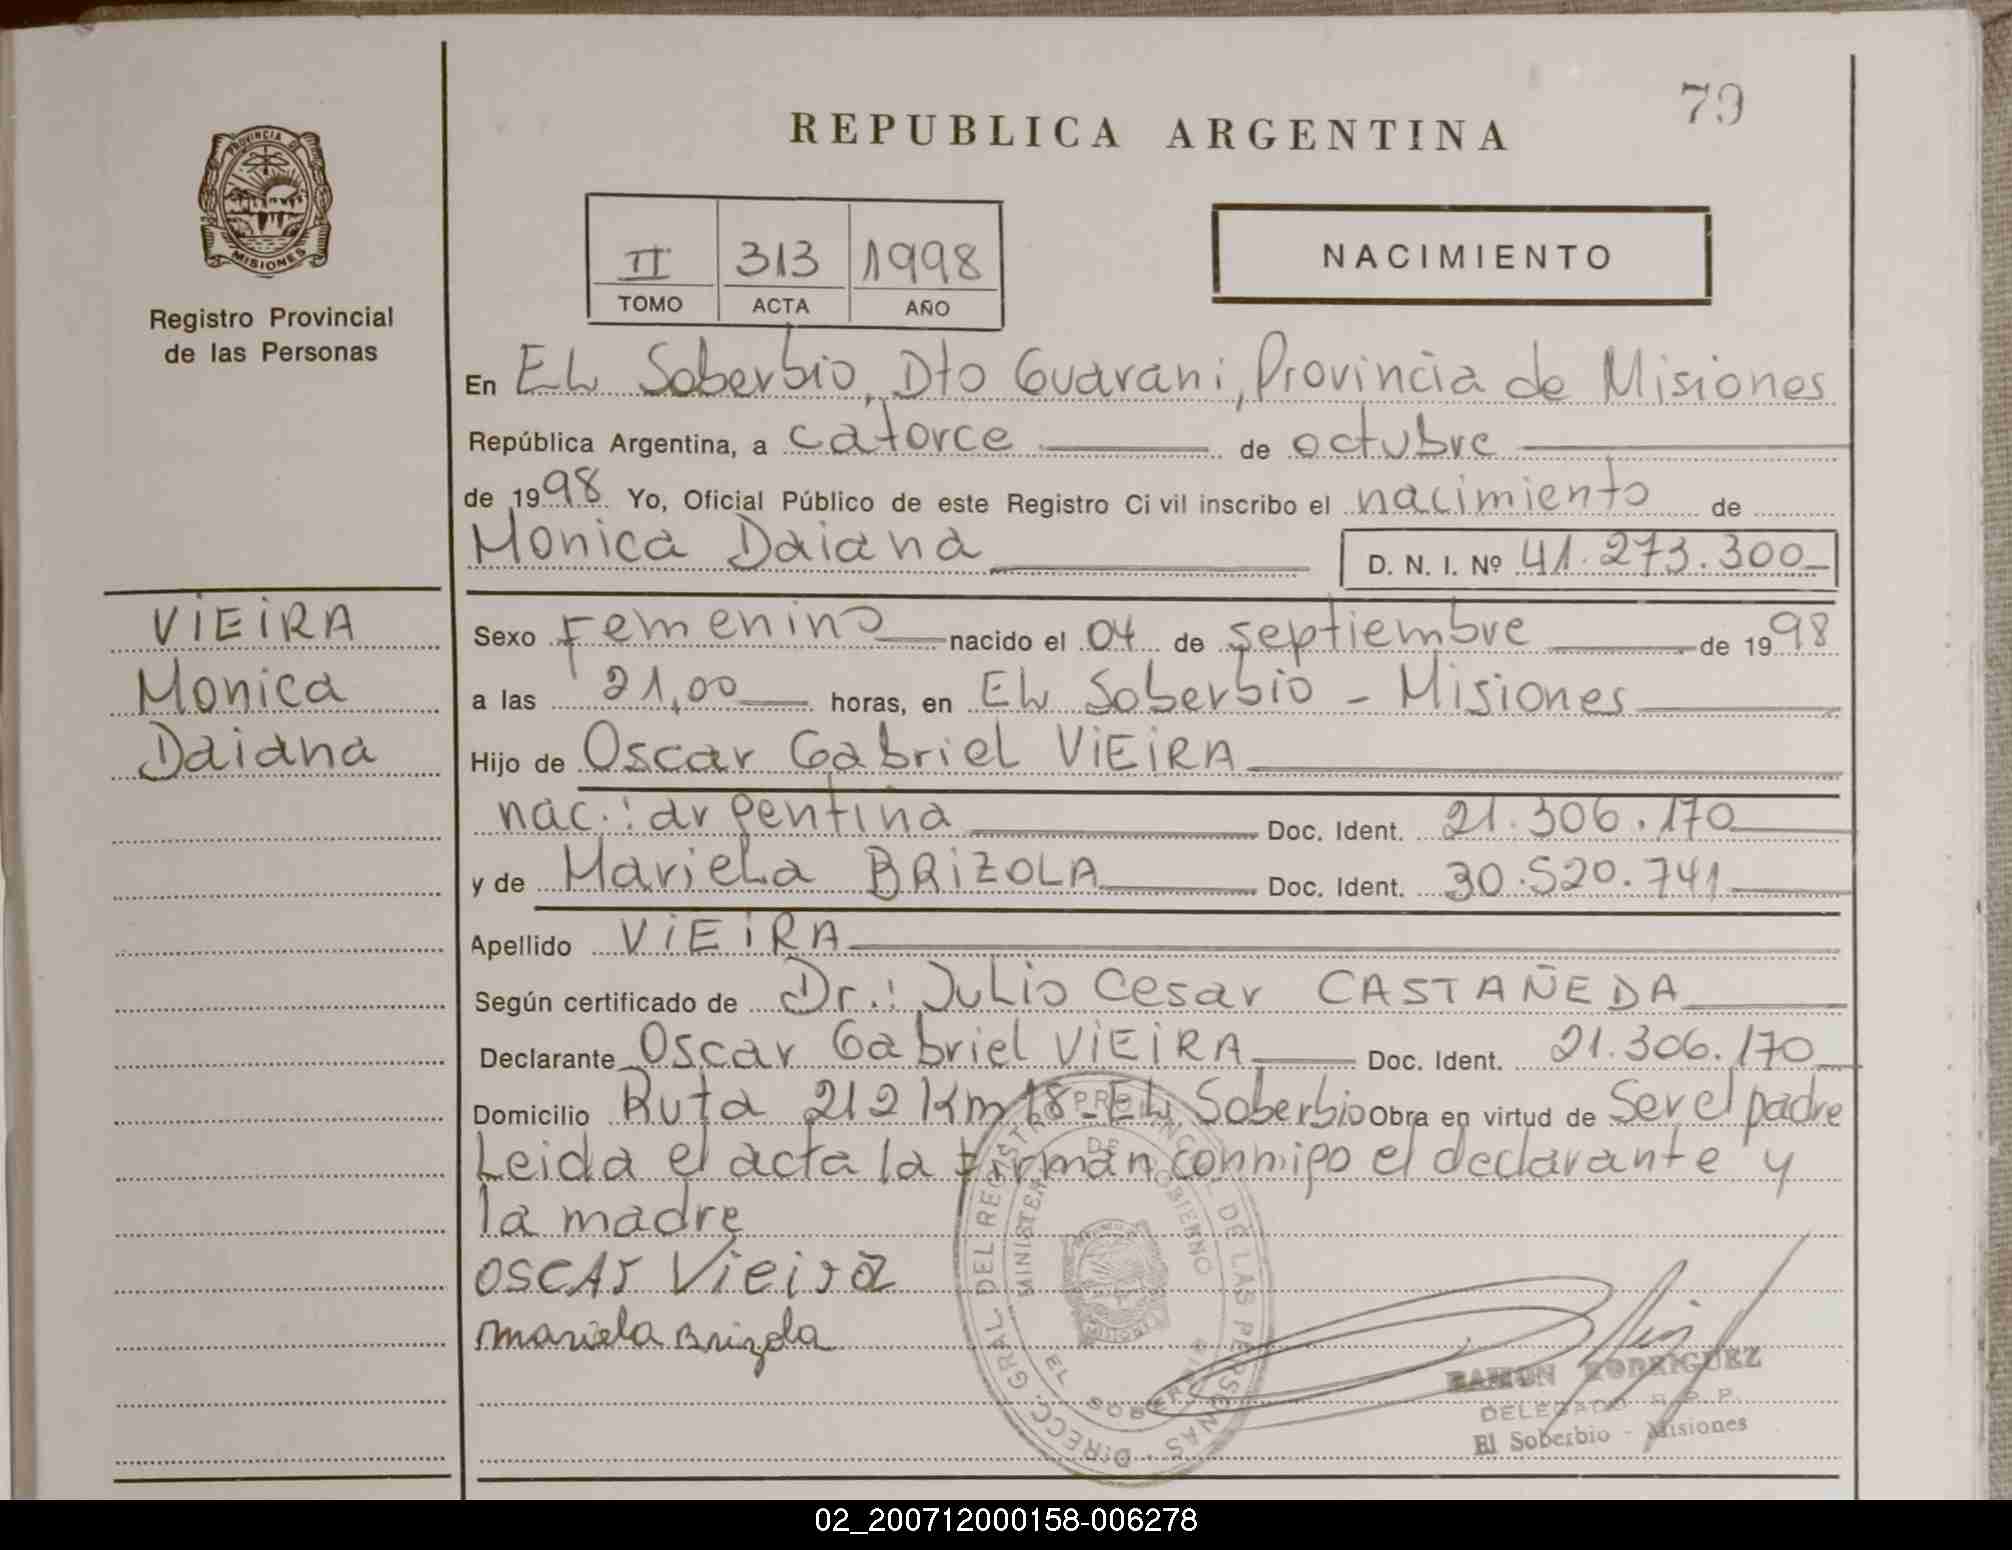 73
REPUBLICA ARGENTINA
PROVINCIA DE
MISIONES
Registro Provincial
de las Personas
II 313 1998
TOMO ACTA AÑO
NACIMIENTO
En EL Soberbio, Dto Guarani, Provincia de Misiones
República Argentina, a catorce de octubre
de 1998 Yo, Oficial Público de este Registro Civil inscribo el nacimiento de
Monica Daiana D. N. I. Nº 41.273.300
VIEIRA
Monica
Daiana
Sexo Femenino nacido el 04 de septiembre de 1998
a las 21,00 horas, en EL Soberbio - Misiones
Hijo de Oscar Gabriel VIEIRA
nac.: argentina Doc. Ident. 21.306.170
y de Mariela BRIZOLA Doc. Ident. 30.520.741
Apellido VIEIRA
Según certificado de Dr.: Julio Cesar CASTAÑEDA
Declarante Oscar Gabriel VIEIRA Doc. Ident. 21.306.170
Domicilio Ruta 212 Km 18 - EL Soberbio Obra en virtud de Ser el padre
Leida el acta la firman conmigo el declarante y
la madre
OSCAR Vieira
mariela Brizola
DIRECC. GRAL DEL REGISTRO PROVINCIAL DE LAS PERSONAS
MINISTERIO DE GOBIERNO
EL SOBERBIO
RAMON RODRIGUEZ
DELEGADO R. P. P.
El Soberbio - Misiones
02_200712000158-006278